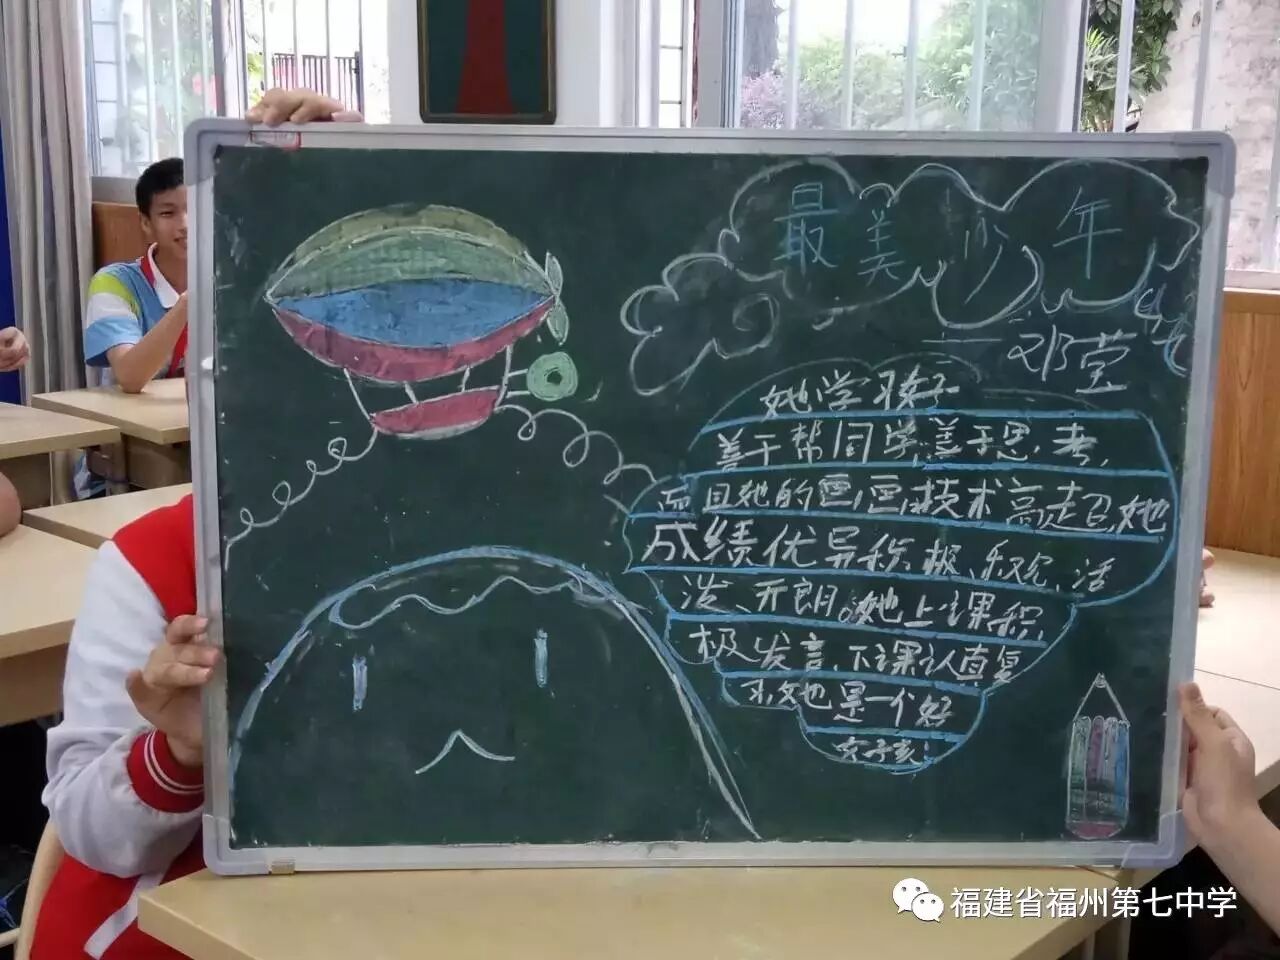 最美少年
——邓莹
她学习好
善于帮同学,善于思考,
而且她的画画技术高超,她
成绩优异积极、乐观、活
泼、开朗。她上课积
极发言,下课认真复
习,她是一个好
女子孩
福建省福州第七中学